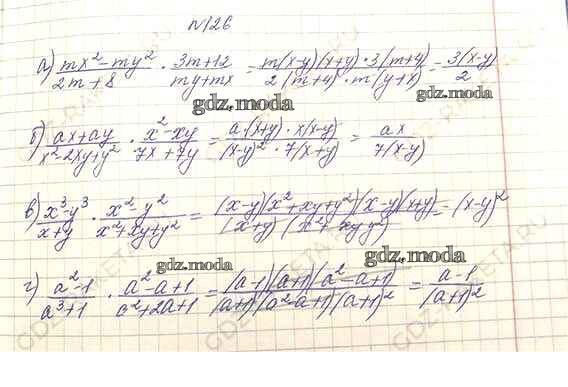 №126
а) (mx² - my²)/(2m + 8) · (3m + 12)/(my + mx) = (m(x-y)(x+y) · 3(m+4))/(2(m+4) · m(y+x)) = 3(x-y)/2
gdz.moda
gdz.moda
б) (ax + ay)/(x² - 2xy + y²) · (x² - xy)/(7x + 7y) = (a·(x+y) · x(x-y))/((x-y)² · 7(x+y)) = ax/7(x-y)
gdz.moda
в) (x³ - y³)/(x + y) · (x² - y²)/(x² + xy + y²) = ((x-y)(x² + xy + y²)(x-y)(x+y))/((x+y)(x² + xy y²)) = (x-y)²
gdz.moda
gdz.moda
г) (a² - 1)/(a³ + 1) · (a² - a + 1)/(a² + 2a + 1) = ((a-1)(a+1)(a² - a + 1))/((a+1)(a² - a + 1)(a+1)²) = (a-1)/(a+1)²
gdz.moda